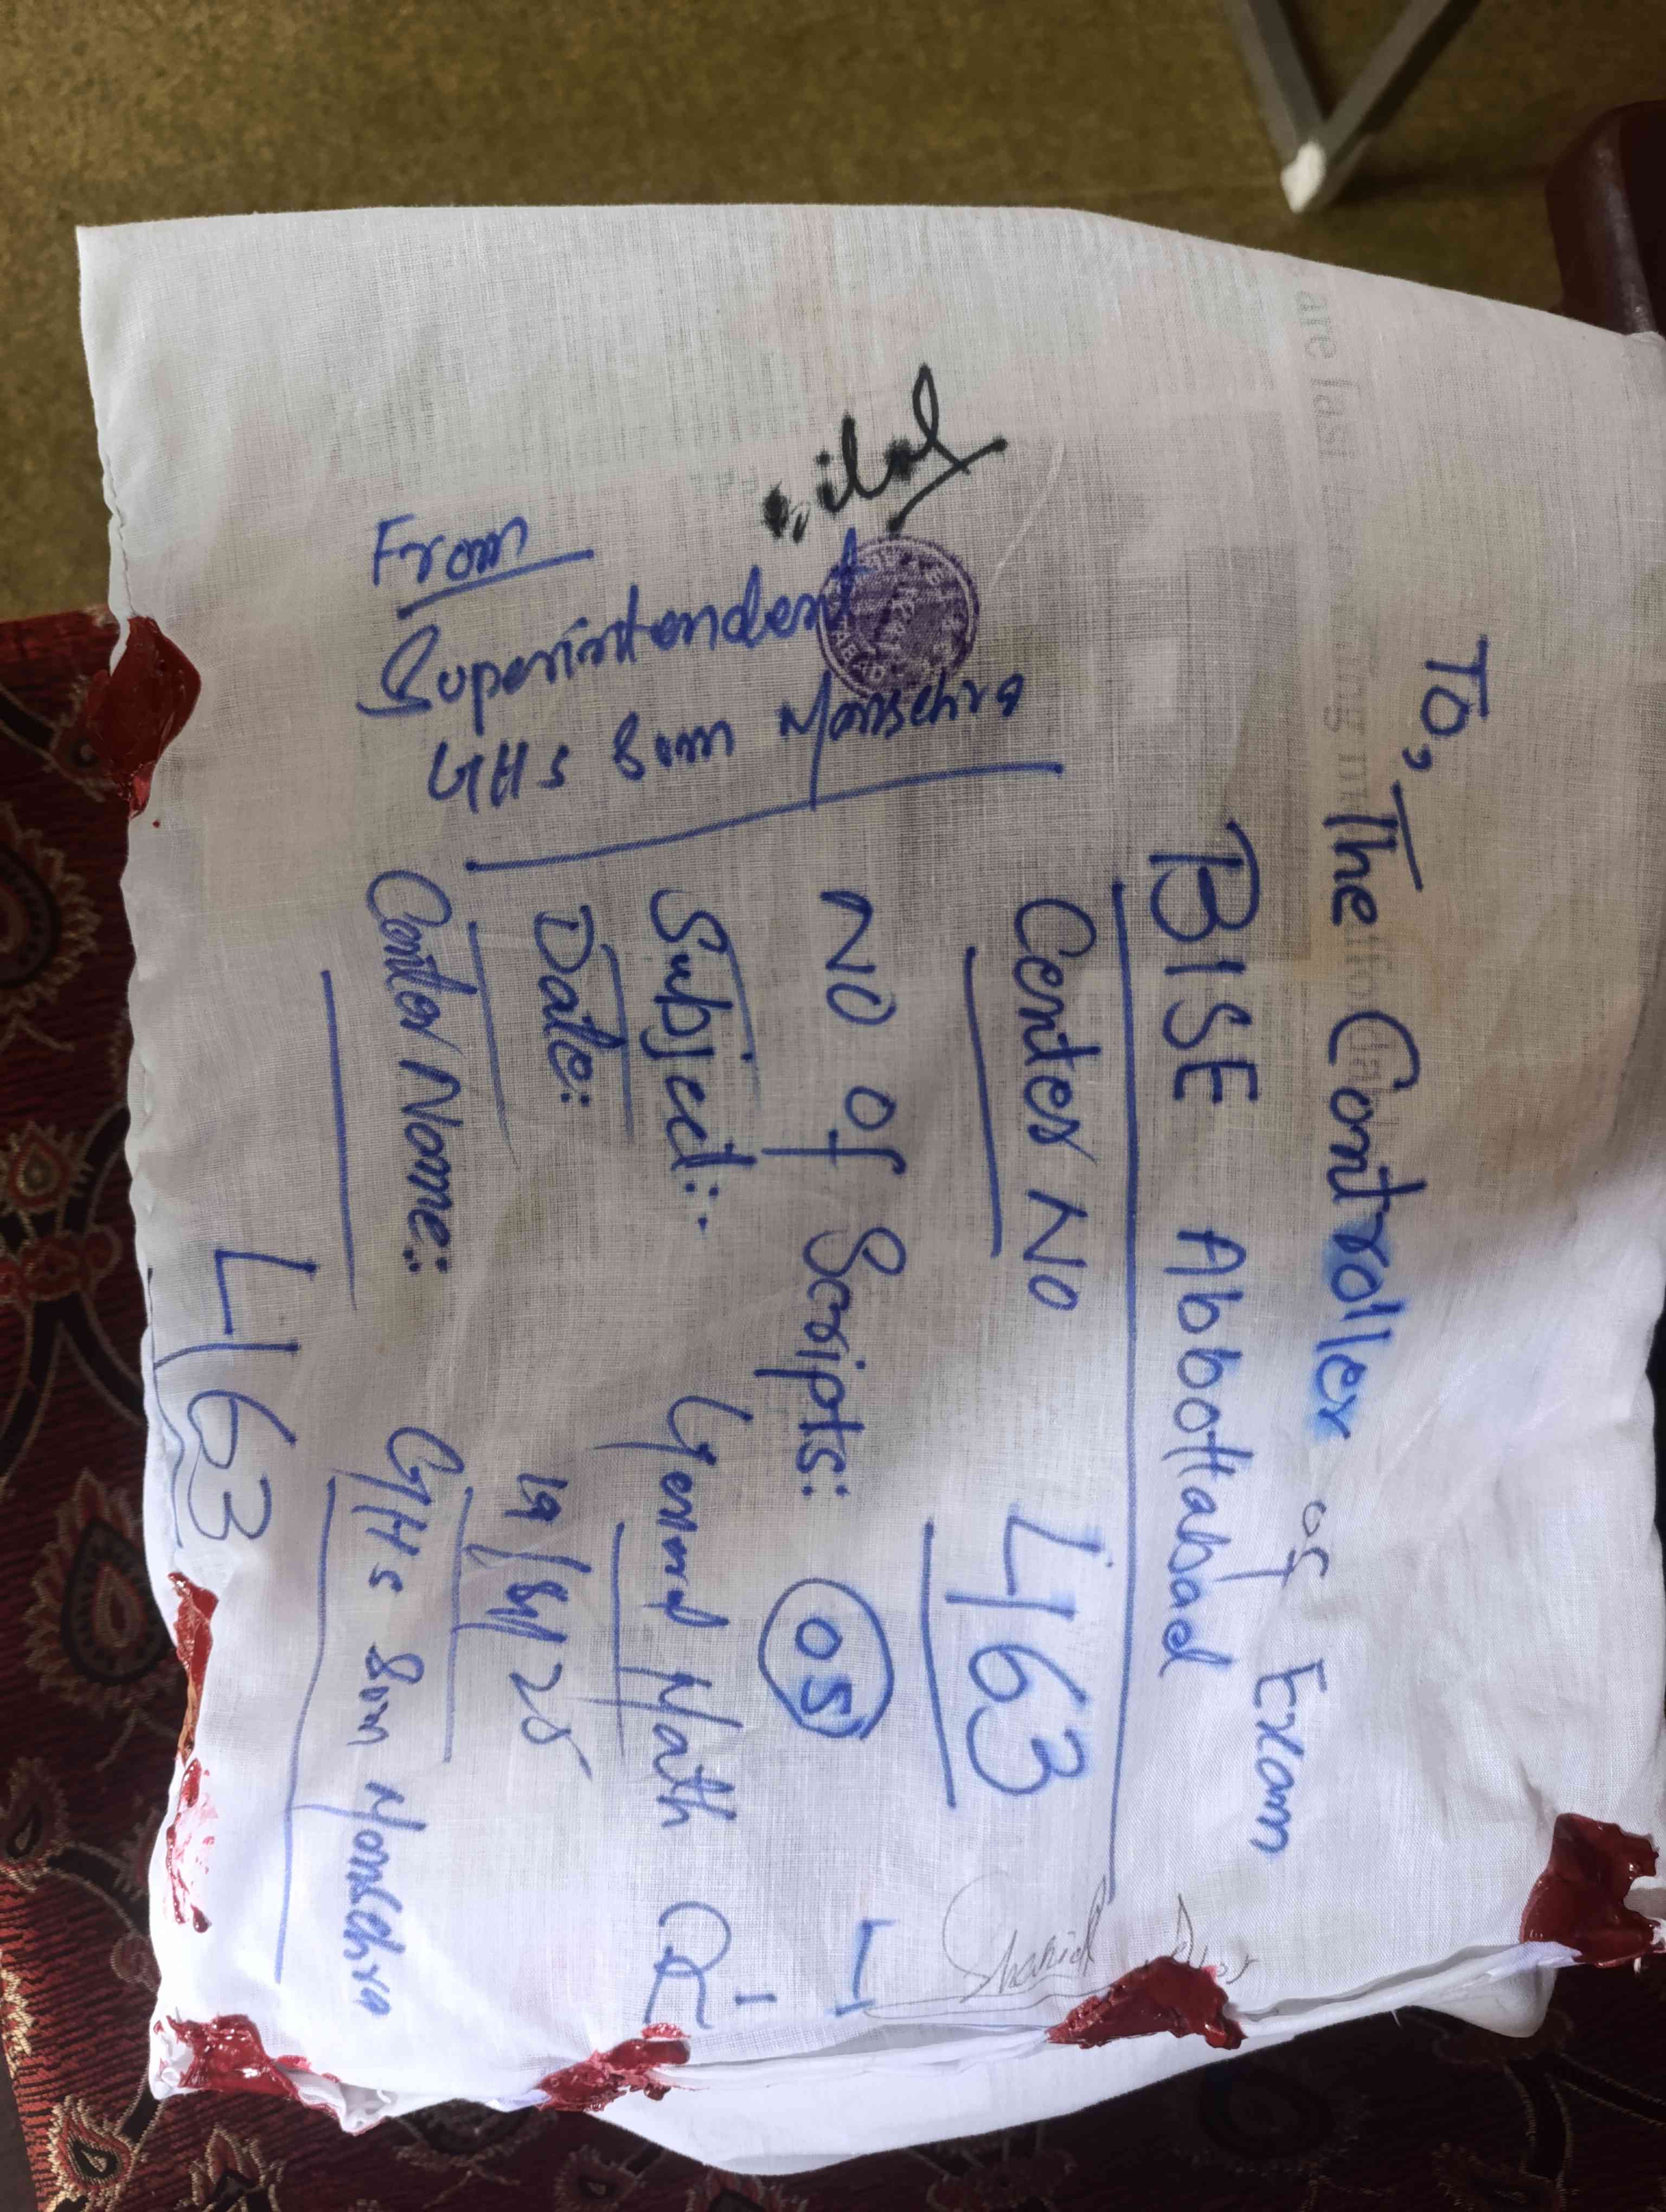 To, The Controller of Exam
BISE Abbottabad
Center No 463
No of Scripts: 05
Subject: General Math
Date: 19/8/25
Center Name: GHS Bum Mansehra
463
From
Superintendent
GHS Bum Mansehra
Shahid